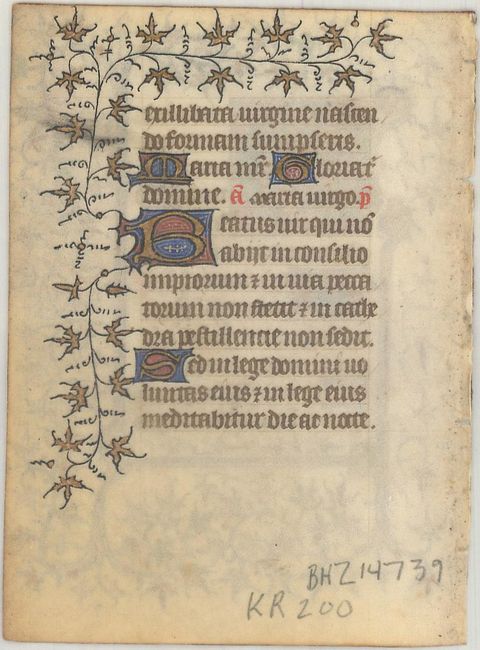 ex illibata uirgine nascen
do formam sumpseris.
Maria mr̄. Gloria tͥ
domine. a͞ Maria uirgo. p͞
Beatus uir qui nō
abijt in consilio
impiorum ⁊ in uia pecca
torum non stetit ⁊ in cathe
dra pestillencie non sedit.
Sed in lege domini uo
luntas eius ⁊ in lege eius
meditabitur die ac nocte.
BHZ14739
KR 200